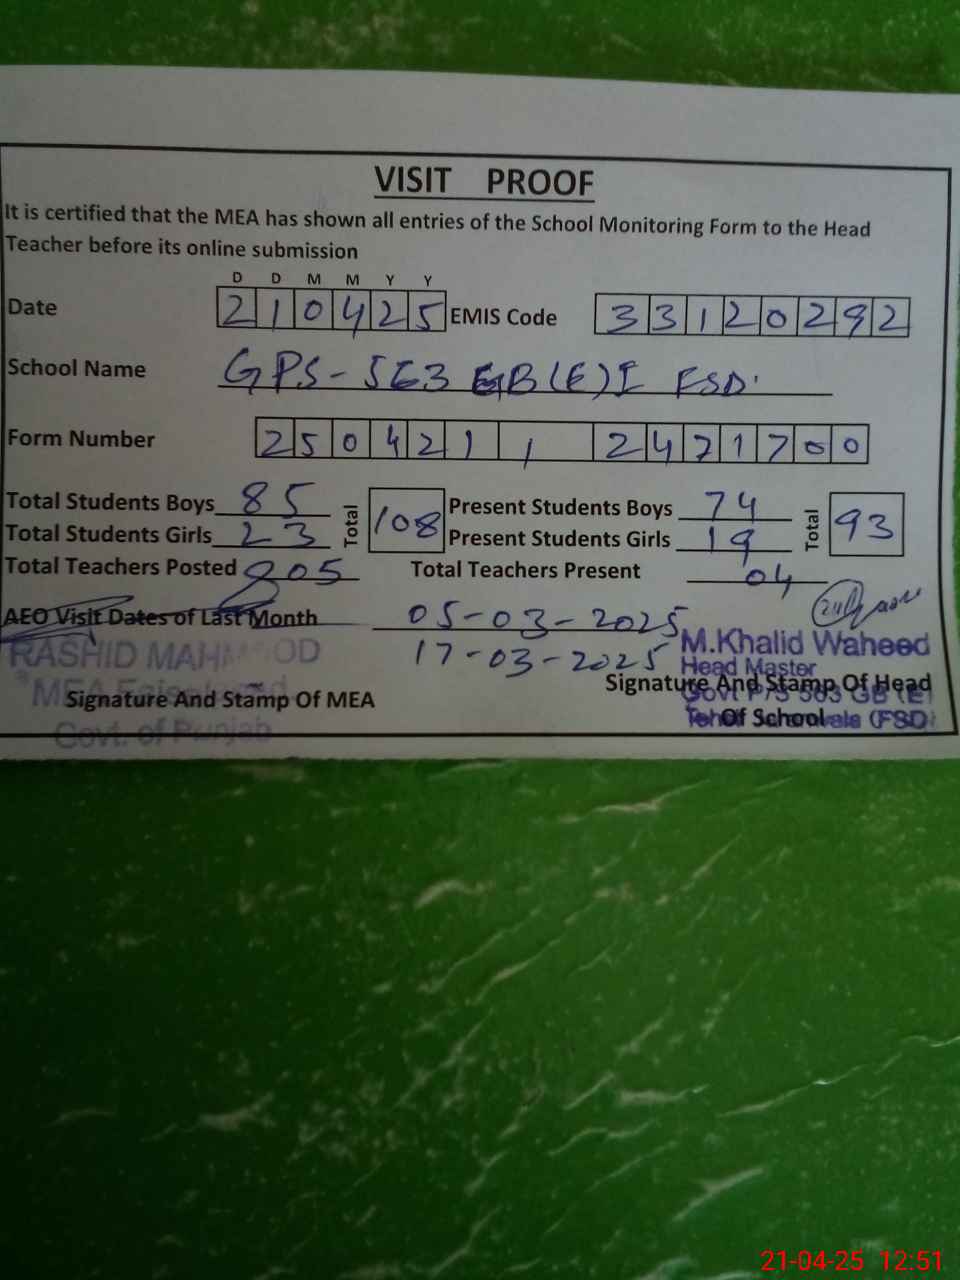 VISIT PROOF
It is certified that the MEA has shown all entries of the School Monitoring Form to the Head
Teacher before its online submission
D D M M Y Y
Date 2 1 0 4 2 5 EMIS Code 3 3 1 2 0 2 9 2
School Name GPS-563 GB(E)I FSD.
Form Number 2 5 0 4 2 1 1 2 4 7 1 7 0 0
Total Students Boys 85 Total 108 Present Students Boys 74 Total 93
Total Students Girls 23 Present Students Girls 19
Total Teachers Posted 05 Total Teachers Present 04
AEO Visit Dates of Last Month 05-03-2025
17-03-2025
RASHID MAHMOOD
MEA Faisalabad
Govt. of Punjab
Signature And Stamp Of MEA
M.Khalid Waheed
Head Master
Govt P/S 563 GB (E)
Teh (FSD)
Signature And Stamp Of Head
Of School
21-04-25 12:51